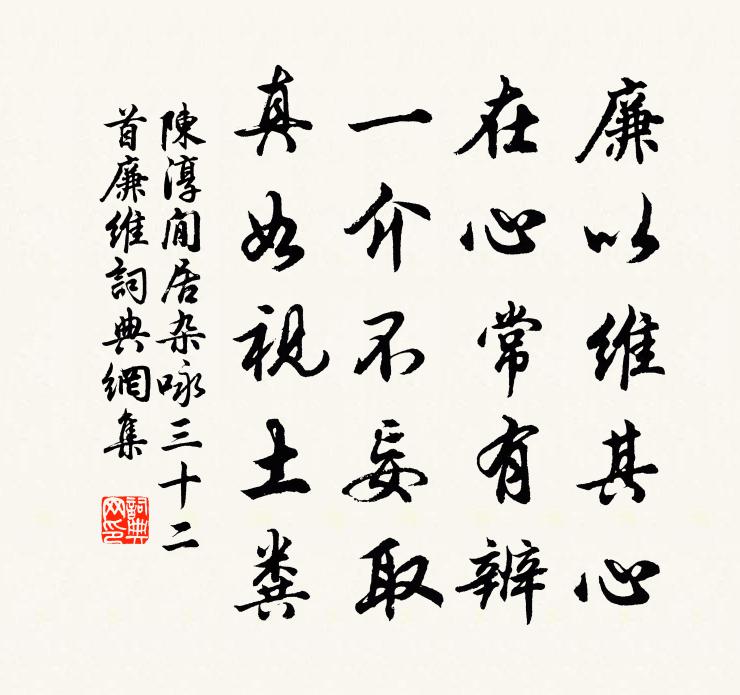 廉以維其心
在心常有辨
一介不妄取
真如視土糞
陳淳閒居杂咏三十二
首廉維詞典網集
詞典
网印